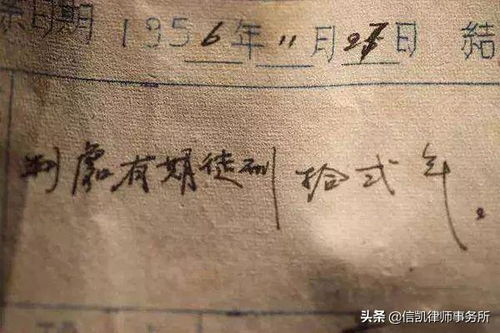 日期 1956年11月27日 結
判處有期徒刑 拾弍年。
头条 @信凯律师事务所